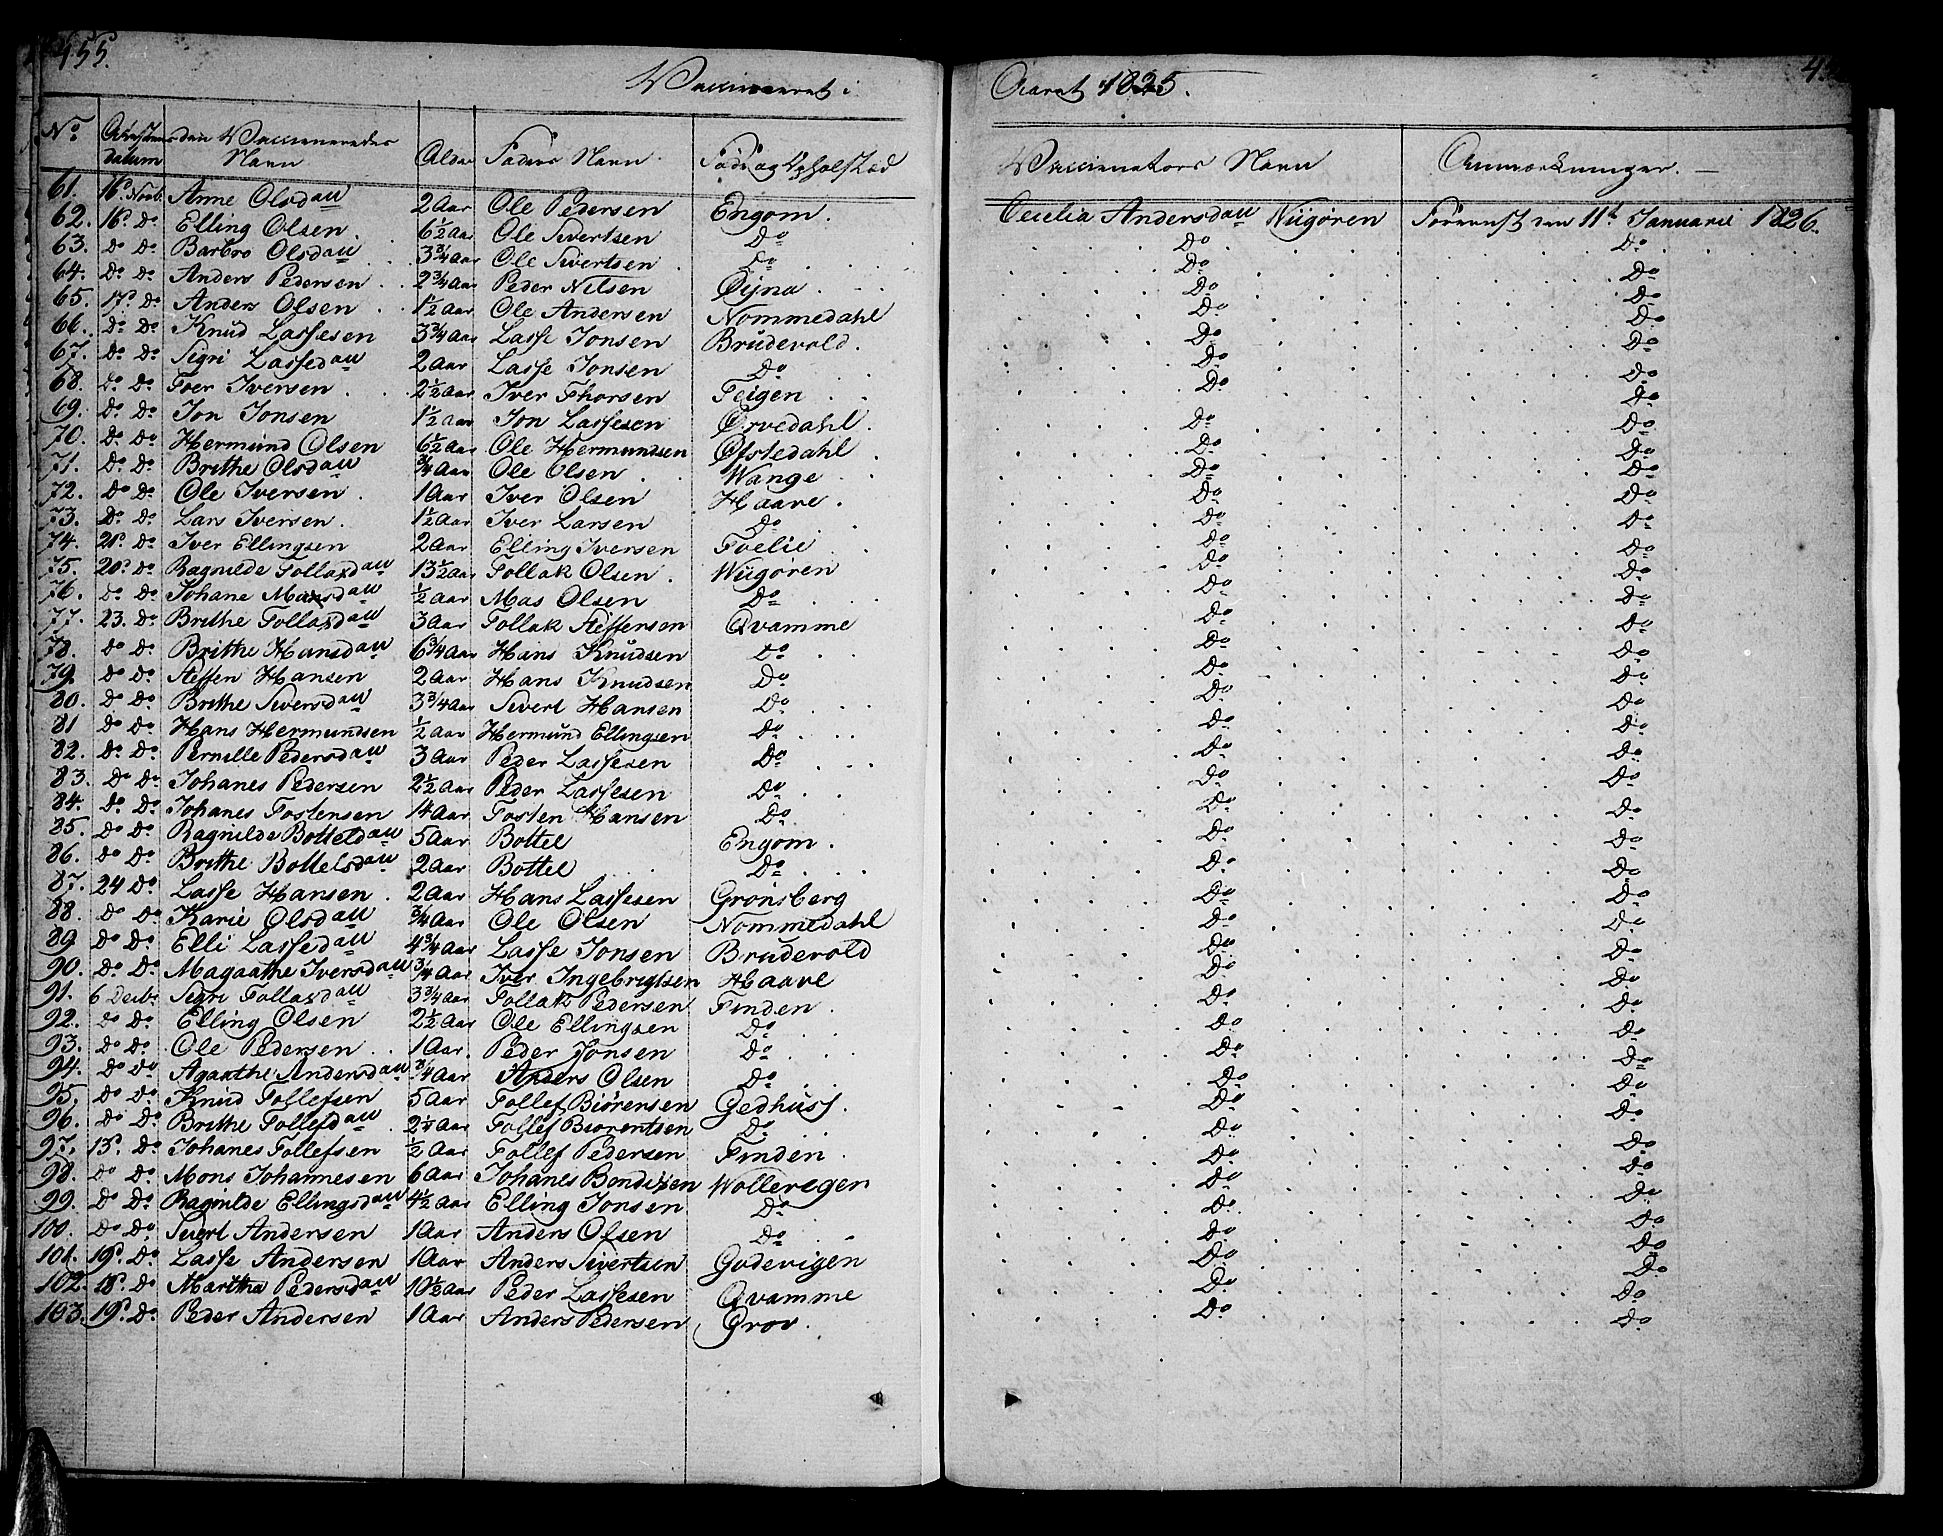 455.
Vaccineret i
Aaret 1825.
No
Attestens datum
den Vaccineredes Navn
Alder
Faders Navn
Føde og Opholsted
Vaccinators Navn
Anmærkninger.
61. 16d Novb. Anne Olsdau 2 Aar Ole Pedersen Engom. Cecilia Andersdau Nügøren Forevist den 11t Januarii 1826.
62. 16d Do Elling Olsen. 6½ Aar Ole Sivertsen Do Do Do
63. Do Do Barbro Olsdau 3¾ Aar Ole Sivertsen Do Do Do
64. Do Do Anders Pedersen 2¾ Aar Peder Nilsen Øijna Do Do
65. 17d Do Anders Olsen 1½ Aar Ole Andersen Nommedahl Do Do
66. Do Do Knud Lassesen 3¾ Aar Lasse Jonsen Brudevold. Do Do
67. Do Do Sigri Lassedau 2 Aar Lasse Jonsen Do Do Do
68. Do Do Iver Iversen 2½ Aar Iver Thorsen Feigen Do Do
69. Do Do Jon Jonsen 1½ Aar Jon Lassesen Ørvedahl. Do Do
70. Do Do Hermund Olsen 6½ Aar Ole Hermundsen Øfstedahl Do Do
71. Do Do Brithe Olsdau ¾ Aar Ole Olsen Wange Do Do
72. Do Do Ole Iversen 1 Aar Iver Olsen Haave Do Do
73. Do Do Lars Iversen. 1½ Aar Iver Larsen Do Do Do
74. 21d Do Iver Ellingsen 2 Aar Elling Iversen Foelie Do Do
75. 20d Do Ragnilde Tollaxdau 13½ Aar Tollak Olsen. Wügøren Do Do
76. Do Do Johane Maxsdau ½ Aar Mas Olsen Do Do Do
77. 23. Do Brithe Tollaxdau 3 Aar Tollak Steffensen Qvamme Do Do
78. Do Do Brithe Hansdau 6¾ Aar Hans Knudsen Do Do Do
79. Do Do Steffen Hansen 2 Aar Hans Knudsen Do Do Do
80. Do Do Brithe Siversdau 3¾ Aar Sivert Hansen Do Do Do
81 Do Do Hans Hermundsen ½ Aar Hermund Ellingsen Do Do Do
82. Do Do Pernille Pedersdau 3 Aar Peder Lassesen Do Do Do
83. Do Do Johanes Pedersen 2½ Aar Peder Lassesen Do Do Do
84. Do Do Johanes Tostensen 14 Aar Tosten Hansen Do Do Do
85. Do Do Ragnilde Botteldau 5 Aar Bottel Engom. Do Do
86. Do Do Brithe Bottelsdau 2 Aar Bottel Do Do Do
87. 24 Do Lasse Hansen. 2 Aar Hans Lassesen Grønsberg Do Do
88. Do Do Karie Olsdau ¾ Aar Ole Olsen Nommedahl Do Do
89. Do Do Elli Lassedau 4¾ Aar Lasse Jonsen Brudevold Do Do
90. Do Do Magaathe Iversdau ¾ Aar Iver Ingebrigtsen Haave Do Do
91. 6 Decbr. Sigri Tollaxdau 3¾ Aar Tollak Pedersen Finden Do Do
92. Do Do Elling Olsen 2½ Aar Ole Ellingsen Do Do Do
93. Do Do Ole Pedersen 1 Aar. Peder Jonsen Do Do Do
94. Do Do Agaathe Andersdau ¾ Aar Anders Olsen Do Do Do
95. Do Do Knud Tollefsen 5 Aar Tollef Biørensen Gedhusf. Do Do
96. Do Do Brithe Tollefsdau 2¼ Aar Tollef Biorentsen Do Do Do
97. 13d Do Johanes Tollefsen ½ Aar Tollef Pedersen Finden Do Do
98. Do Do Mons Johannesen 6 Aar Johanes Bendixen Wollevegen Do Do
99. Do Do Ragnilde Ellingsdau 4½ Aar Elling Jonsen Do Do Do
100. Do Do Sivert Andersen 1 Aar Anders Olsen Do Do Do
101. 19d Do Lasse Andersen 1 Aar Anders Sivertsen Godevigen Do Do
102. 18d Do Martha Pedersdau 10½ Aar Peder Lassesen Qvamme Do Do
103. 19d Do Peder Andersen 1 Aar Anders Pedersen Grov. Do Do